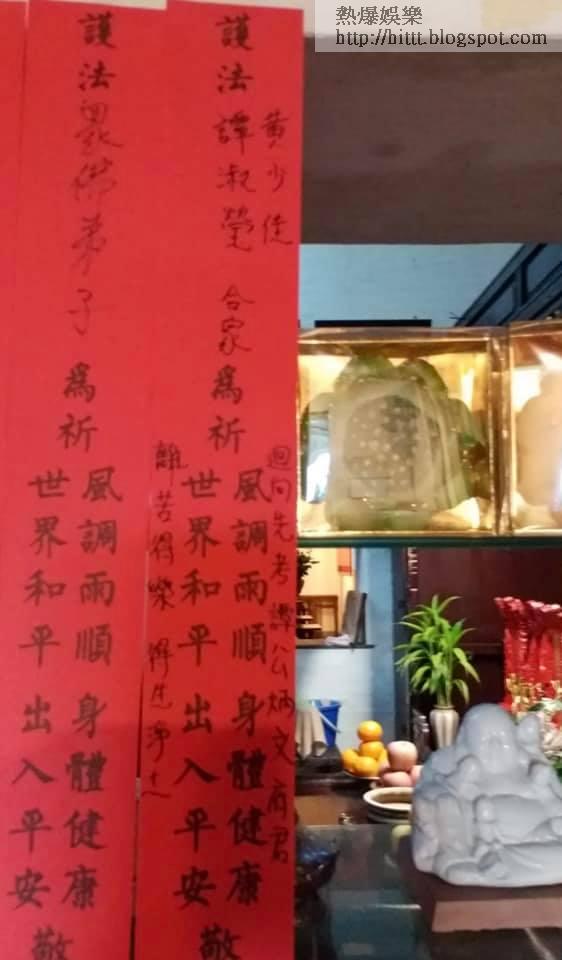 熱爆娛樂
http://hittt.blogspot.com
黃少佳
護法譚淑瑩 合家為祈
迴向先考譚公炳文府君
風調雨順 身體健康
世界和平 出入平安
離苦得樂 得生淨土
敬
護法眾佛弟子為祈
風調雨順 身體健康
世界和平 出入平安
敬